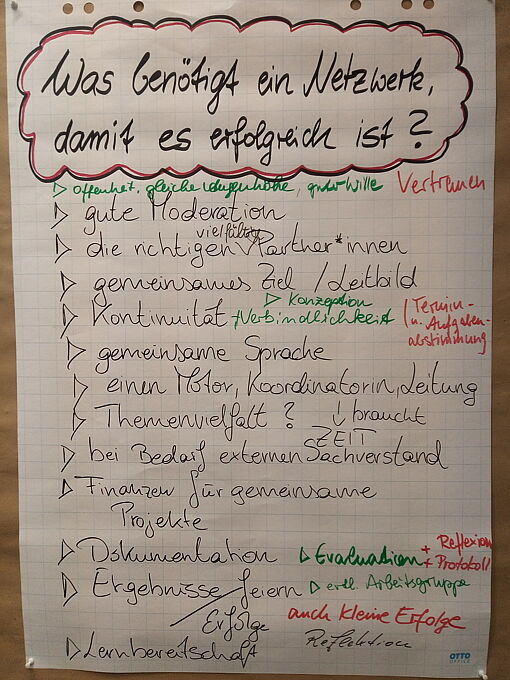 Was benötigt ein Netzwerk,
damit es erfolgreich ist?
▷ offenheit, gleiche Augenhöhe, guter Wille Vertrauen
▷ gute Moderation
vielfältig
▷ die richtigen Partner*innen
▷ gemeinsames Ziel / Leitbild
▷ Konzeption
▷ Kontinuität + Verbindlichkeit
/ Termin-
u. Aufgaben-
abstimmung
▷ gemeinsame Sprache
▷ einen Motor, Koordinatorin, Leitung
▷ Themenvielfalt? ↓ braucht
ZEIT
▷ bei Bedarf externen Sachverstand
▷ Finanzen für gemeinsame
Projekte
▷ Dokumentation ▷ Evaluation + Reflexion
+ Protokoll
▷ Ergebnisse feiern ▷ evtl. Arbeitsgruppe
/ Erfolge
auch kleine Erfolge
▷ Lernbereitschaft Reflektion
OTTO
OFFICE